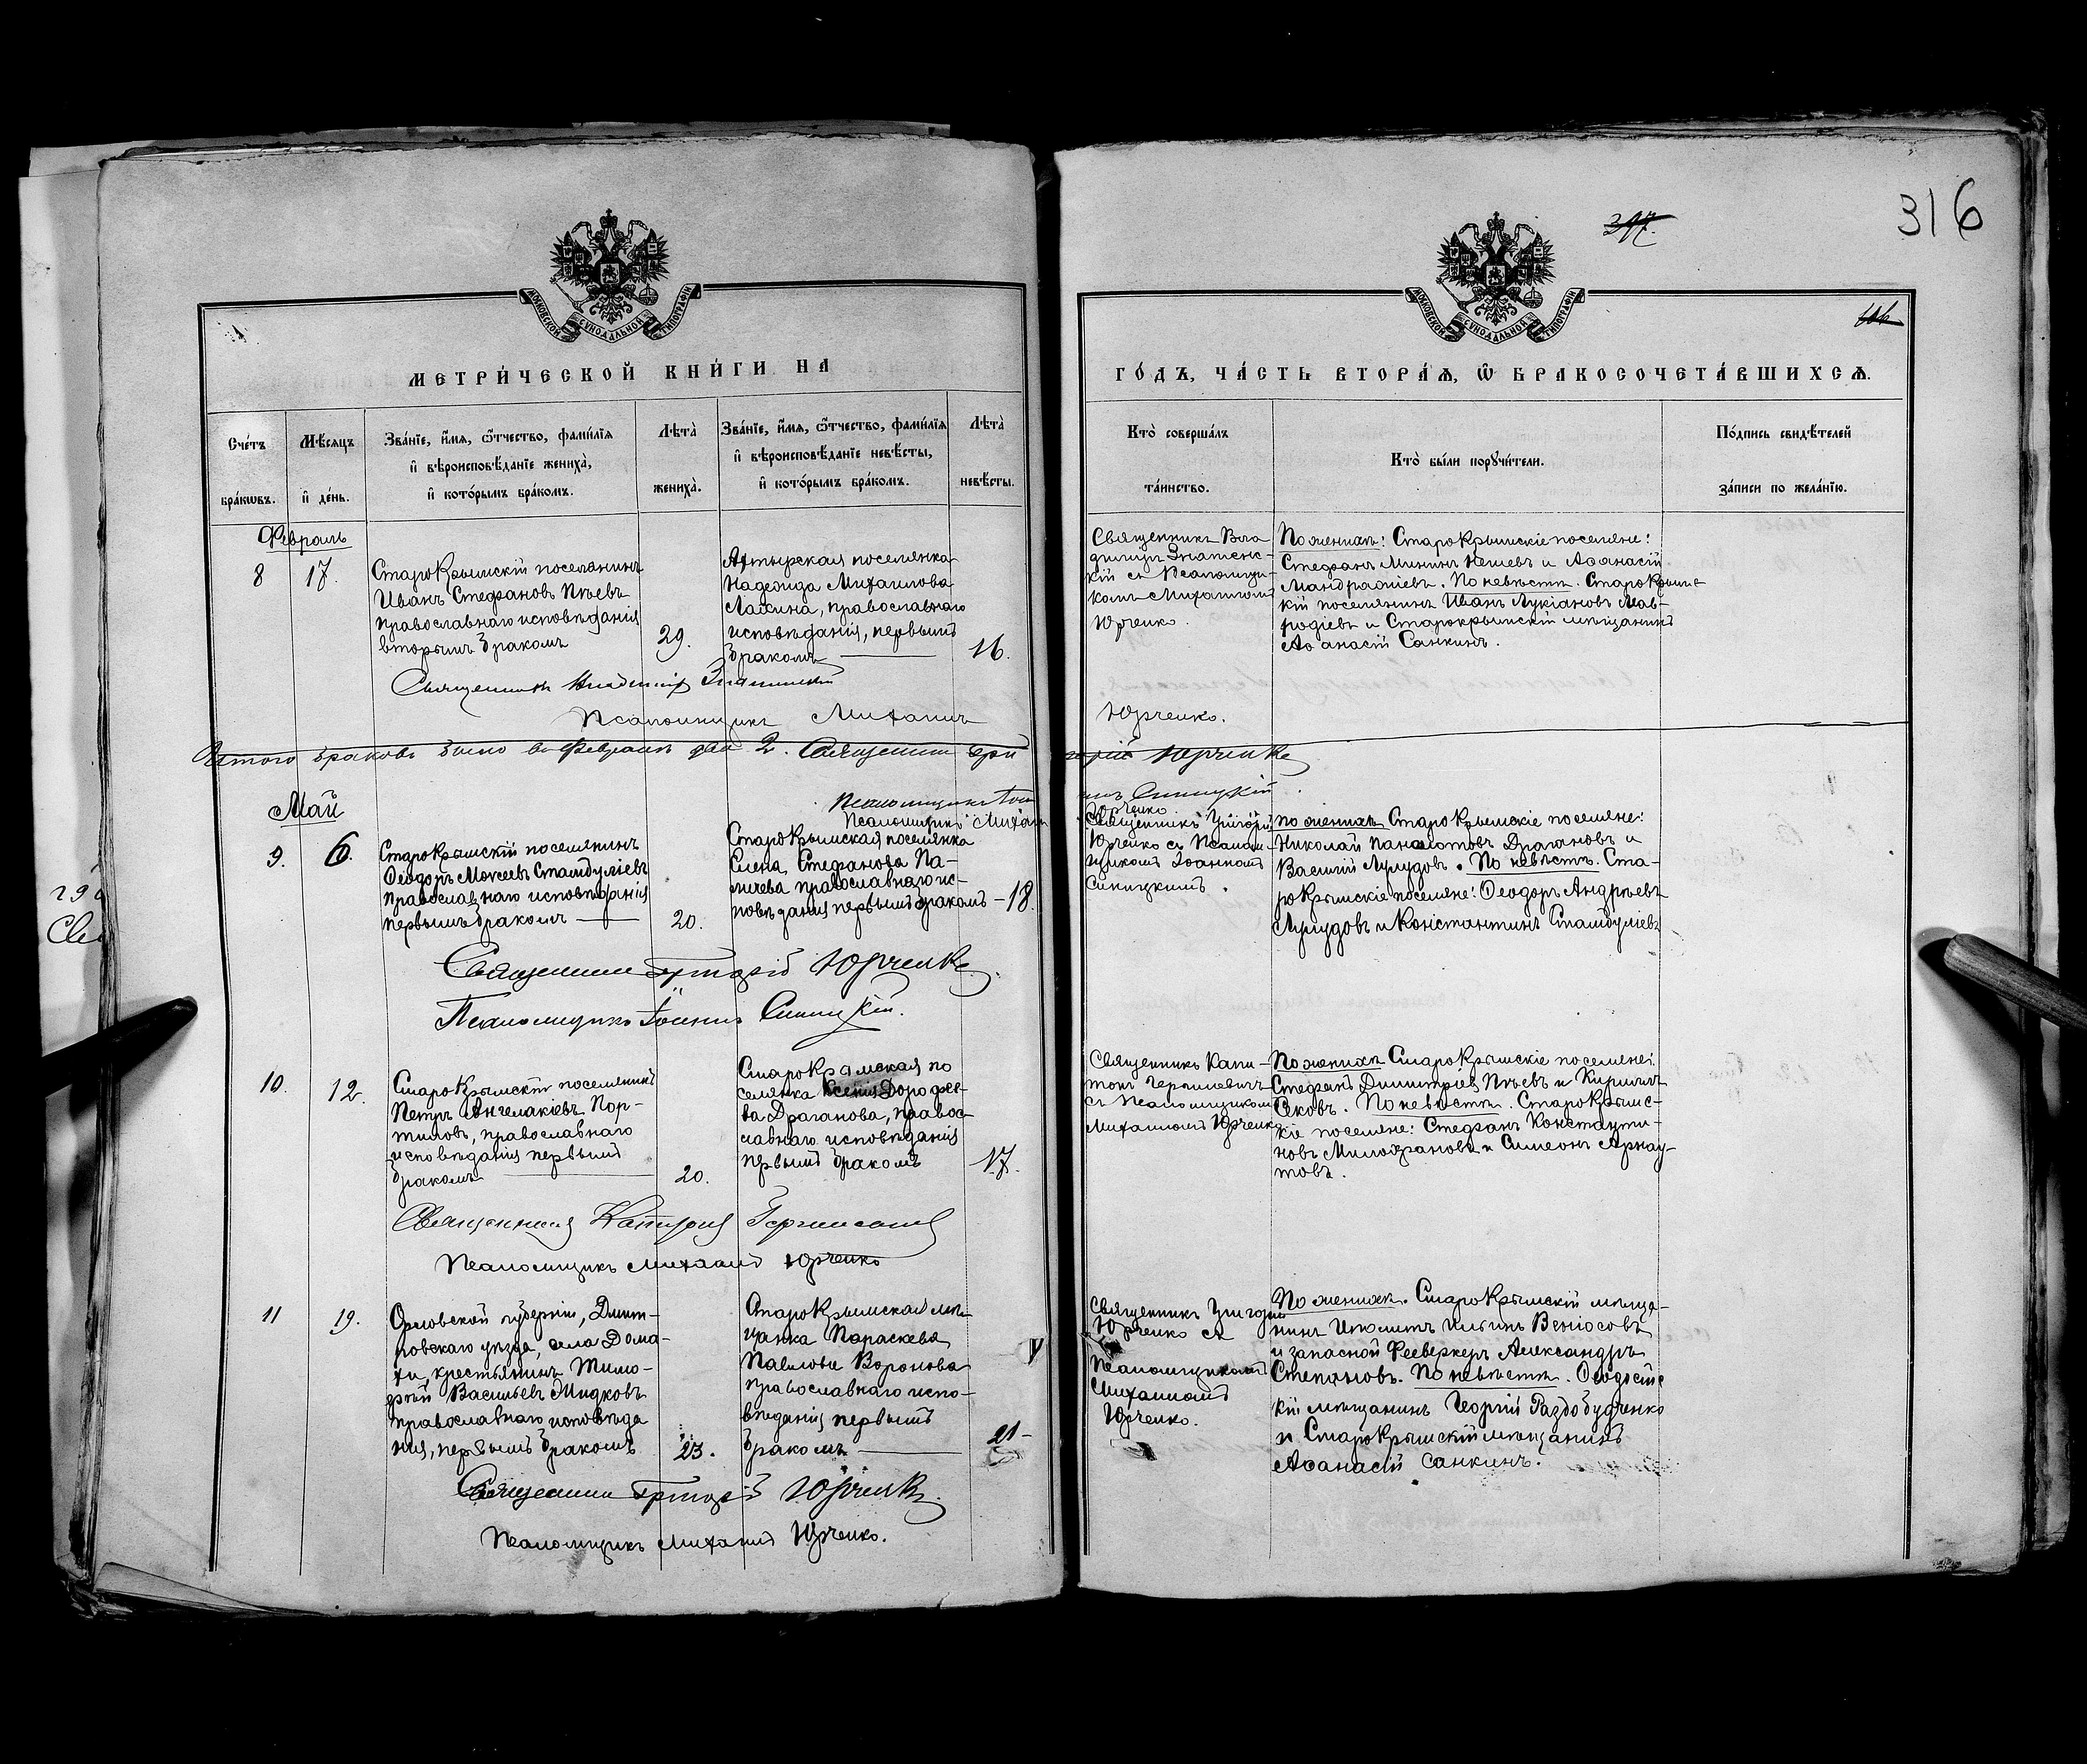 316
397.
106
МОСКОВСКОЙ СУНОДАЛЬНОЙ ТИПОГРАФІИ
МОСКОВСКОЙ СУНОДАЛЬНОЙ ТИПОГРАФІИ
МЕТРИ́ЧЕСКОЙ КНИ́ГИ НА
ГО́ДЪ, ЧА́СТЬ ВТОРА́Я, Ѿ БРАКОСОЧЕТА́ВШИХСЯ.
Сче́тъ
бра́кѡвъ.
Мѣ́сяцъ
и҆ де́нь.
Зва́нїе, и҆́мя, ѻ҆́тчество, фами́лїя
и҆ вѣроисповѣ́данїе жениха̀,
и҆ кото́рымъ бра́комъ.
Лѣ́та̀
жениха̀.
Зва́нїе, и҆́мя, ѻ҆́тчество, фами́лїя
и҆ вѣроисповѣ́данїе невѣ́сты,
и҆ кото́рымъ бра́комъ.
Лѣ́та̀
невѣ́сты.
Кто̀ соверша́лъ
та́инство.
Кто̀ бы́ли порꙋчи́тели.
По́дпись свидѣ́телей
за́писи по жела́нїю.
Февраль
8
17.
Старокрымскій поселянинъ
Иванъ Стефановъ Пѣевъ
православнаго исповѣданія
вторымъ бракомъ
29.
Ахтырская поселянка
Надежда Михаилова
православнаго
исповѣданія, первымъ
бракомъ
16.
Священникъ Вла
димиръ Знаменс-
кій съ Псаломщи-
комъ Михаиломъ
Юрченко.
По женихѣ: Старокрымскіе поселяне:
Стефанъ Мининъ Нешевъ и Аѳанасій
Мандражіевъ. По невѣстѣ. Старокрымс-
кій поселянинъ Иванъ Лукіановъ Мав-
родіевъ и Старокрымскій мѣщанинъ
Аѳанасій Санкинъ.
Священникъ Владиміръ Знаменскій
Псаломщикъ Михаилъ Юрченко.
Итого браковъ было въ Февралѣ два 2. Священникъ Григорій Юрченко
Псаломщикъ Іоаннъ Синицкій
Псаломщикъ Михаилъ Юрченко
Май
9.
6.
Старокрымскій поселянинъ
Ѳеодоръ Моѵсеевъ Стамбуліевъ
православнаго исповѣданія
первымъ бракомъ
20.
Старокрымская поселянка
Елена Стефанова Па-
ничева православнаго ис-
повѣданія первымъ бракомъ
18.
Священникъ Григорій
Юрченко съ Псалом-
щикомъ Іоанномъ
Синицкимъ.
По женихѣ Старокрымскіе поселяне:
Николай Панаіотовъ Драгановъ и
Василій Лулудовъ. По невѣстѣ. Ста-
рокрымскіе поселяне: Ѳеодоръ Андреевъ
Лулудовъ и Константинъ Стамбуліевъ
Священникъ Григорій Юрченко
Псаломщикъ Іоаннъ Синицкій.
10.
12.
Старокрымскій поселянинъ
Петръ Ангелакіевъ Пор-
тиловъ, православнаго
исповѣданія первымъ
бракомъ
20.
Старокрымская по
селянка Ксенія Дорофее-
ва Драганова, правос-
лавнаго исповѣданія
первымъ бракомъ
17.
Священникъ Капи-
тонъ
съ Псаломщикомъ
Михаиломъ Юрченко
По женихѣ Старокрымскіе поселяне:
Стефанъ Димитріевъ Пѣевъ и Кириллъ
Сѣковъ. По невѣстѣ. Старокрымс-
кіе поселяне: Стефанъ Константи-
новъ Милофановъ и Симеонъ Арнау-
товъ.
Священникъ Капитонъ
Псаломщикъ Михаилъ Юрченко
11
19.
Орловской губерніи, Дмит-
ровскаго уѣзда, села Дома-
хи, крестьянинъ Тимо-
фей Васильевъ Мидковъ
православнаго исповѣда
нія, первымъ бракомъ
23.
Старокрымская мѣ-
щанка Параскева
Павлова Воронова
православнаго испо-
вѣданія первымъ
бракомъ
21
Священникъ Григорій
Юрченко съ
Псаломщикомъ
Михаиломъ
Юрченко.
По женихѣ. Старокрымскій мѣща-
нинъ Ипполитъ Ильинъ
и запасной Фееверкеръ Александръ
Степановъ. По невѣстѣ. Ѳеодосійс
кій мѣщанинъ Георгій Раздобудченко
и Старокрымскій мѣщанинъ
Аѳанасій Санкинъ.
Священникъ Григорій Юрченко.
Псаломщикъ Михаилъ Юрченко.